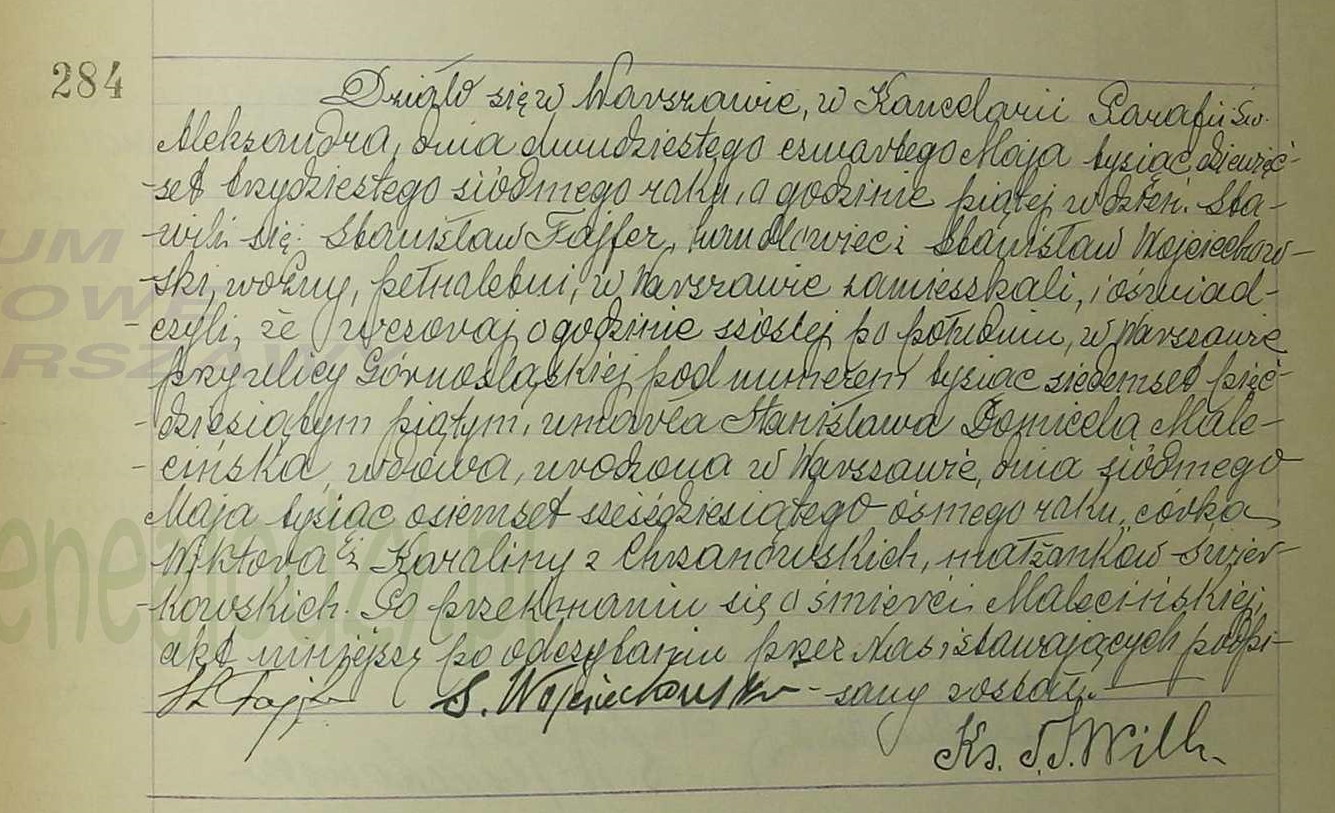 284
Działo się w Warszawie, w Kancelarii Parafii Św.
Aleksandra, dnia dwudziestego czwartego Maja tysiąc dziewięć-
-set trzydziestego siódmego roku, o godzinie piątej w dzień. Sta-
-wili się: Stanisław Fajfer, handlowiec i Stanisław Wojciechow-
-ski, woźny, pełnoletni, w Warszawie zamieszkali, i oświad-
-czyli, że wczoraj o godzinie szóstej po południu, w Warszawie
przy ulicy Górnośląskiej pod numerem tysiąc siedemset pięć-
-dziesiątym piątym, umarła Stanisława Domicela Male-
-cińska, wdowa, urodzona w Warszawie, dnia siódmego
Maja tysiąc osiemset sześćdziesiątego ósmego roku, córka
Wiktora i Karoliny z Chrzanowskich, małżonków Świer-
-kowskich. Po przekonaniu się o śmierci Malecińskiej,
akt niniejszy po odczytaniu przez Nas i stawających podpi-
St Fajfer S. Wojciechowski -sany został.
Ks. J. Wilk
UM
OWE
RSZAW
genealodzy.pl